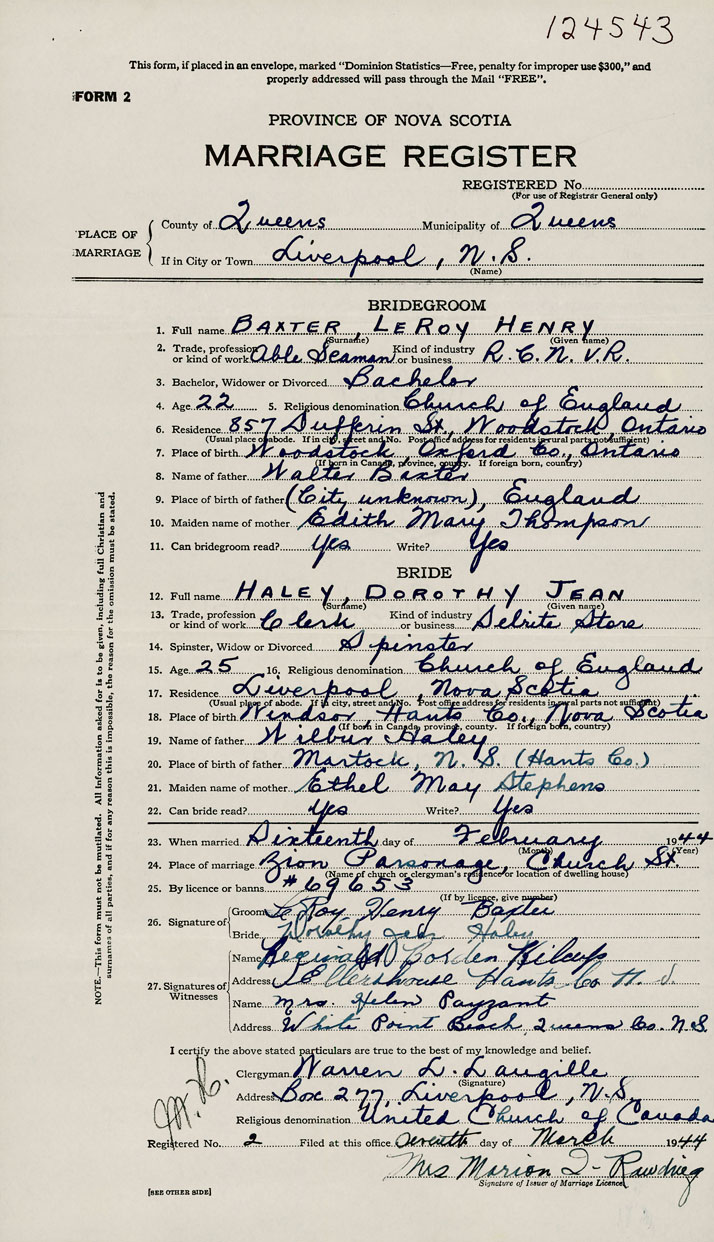 124543
This form, if placed in an envelope, marked "Dominion Statistics—Free, penalty for improper use $300," and
properly addressed will pass through the Mail "FREE".
FORM 2
PROVINCE OF NOVA SCOTIA
MARRIAGE REGISTER
REGISTERED No.
(For use of Registrar General only)
PLACE OF MARRIAGE
County of Queens Municipality of Queens
If in City or Town Liverpool, N.S.
(Name)
BRIDEGROOM
1. Full name BAXTER, LEROY HENRY
(Surname) (Given name)
2. Trade, profession or kind of work Able Seaman Kind of industry or business R.C.N.V.R.
3. Bachelor, Widower or Divorced Bachelor
4. Age 22 5. Religious denomination Church of England
6. Residence 857 Dufferin St., Woodstock, Ontario
(Usual place of abode. If in city, street and No. Post office address for residents in rural parts not sufficient)
7. Place of birth Woodstock, Oxford Co., Ontario
(If born in Canada, province, county. If foreign born, country)
8. Name of father Walter Baxter
9. Place of birth of father (City unknown), England
10. Maiden name of mother Edith Mary Thompson
11. Can bridegroom read? Yes Write? Yes
BRIDE
12. Full name HALEY, DOROTHY JEAN
(Surname) (Given name)
13. Trade, profession or kind of work Clerk Kind of industry or business Selrite Store
14. Spinster, Widow or Divorced Spinster
15. Age 25 16. Religious denomination Church of England
17. Residence Liverpool, Nova Scotia
(Usual place of abode. If in city, street and No. Post office address for residents in rural parts not sufficient)
18. Place of birth Windsor, Hants Co., Nova Scotia
(If born in Canada, province, county. If foreign born, country)
19. Name of father Wilbur Haley
20. Place of birth of father Martock, N.S. (Hants Co.)
21. Maiden name of mother Ethel May Stephens
22. Can bride read? Yes Write? Yes
23. When married Sixteenth day of February 1944
(Month) (Year)
24. Place of marriage Zion Parsonage, Church St.
(Name of church or clergyman's residence or location of dwelling house)
25. By licence or banns #69653
(If by licence, give number)
26. Signature of
Groom LeRoy Henry Baxter
Bride Dorothy Jean Haley
27. Signatures of Witnesses
Name Reginald Borden Kilcup
Address Ellershouse Hants Co N.S.
Name Mrs. Helen Payzant
Address White Point Beach, Queens Co. N.S.
I certify the above stated particulars are true to the best of my knowledge and belief.
Clergyman Warren L. Langille
(Signature)
Address Box 277, Liverpool, N.S.
Religious denomination United Church of Canada
Registered No. 2 Filed at this office Seventh day of March 1944
Mrs Marion
Signature of Issuer of Marriage Licence
[SEE OTHER SIDE]
NOTE.—This form must not be mutilated. All information asked for is to be given, including full Christian and
surnames of all parties, and if for any reason this is impossible, the reason for the omission must be stated.